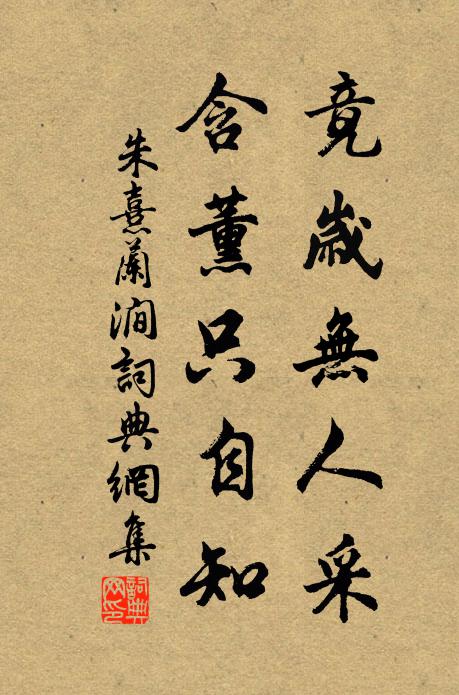 竟歲無人采
含薰只自知
朱熹蘭澗詞典網集
詞典網印